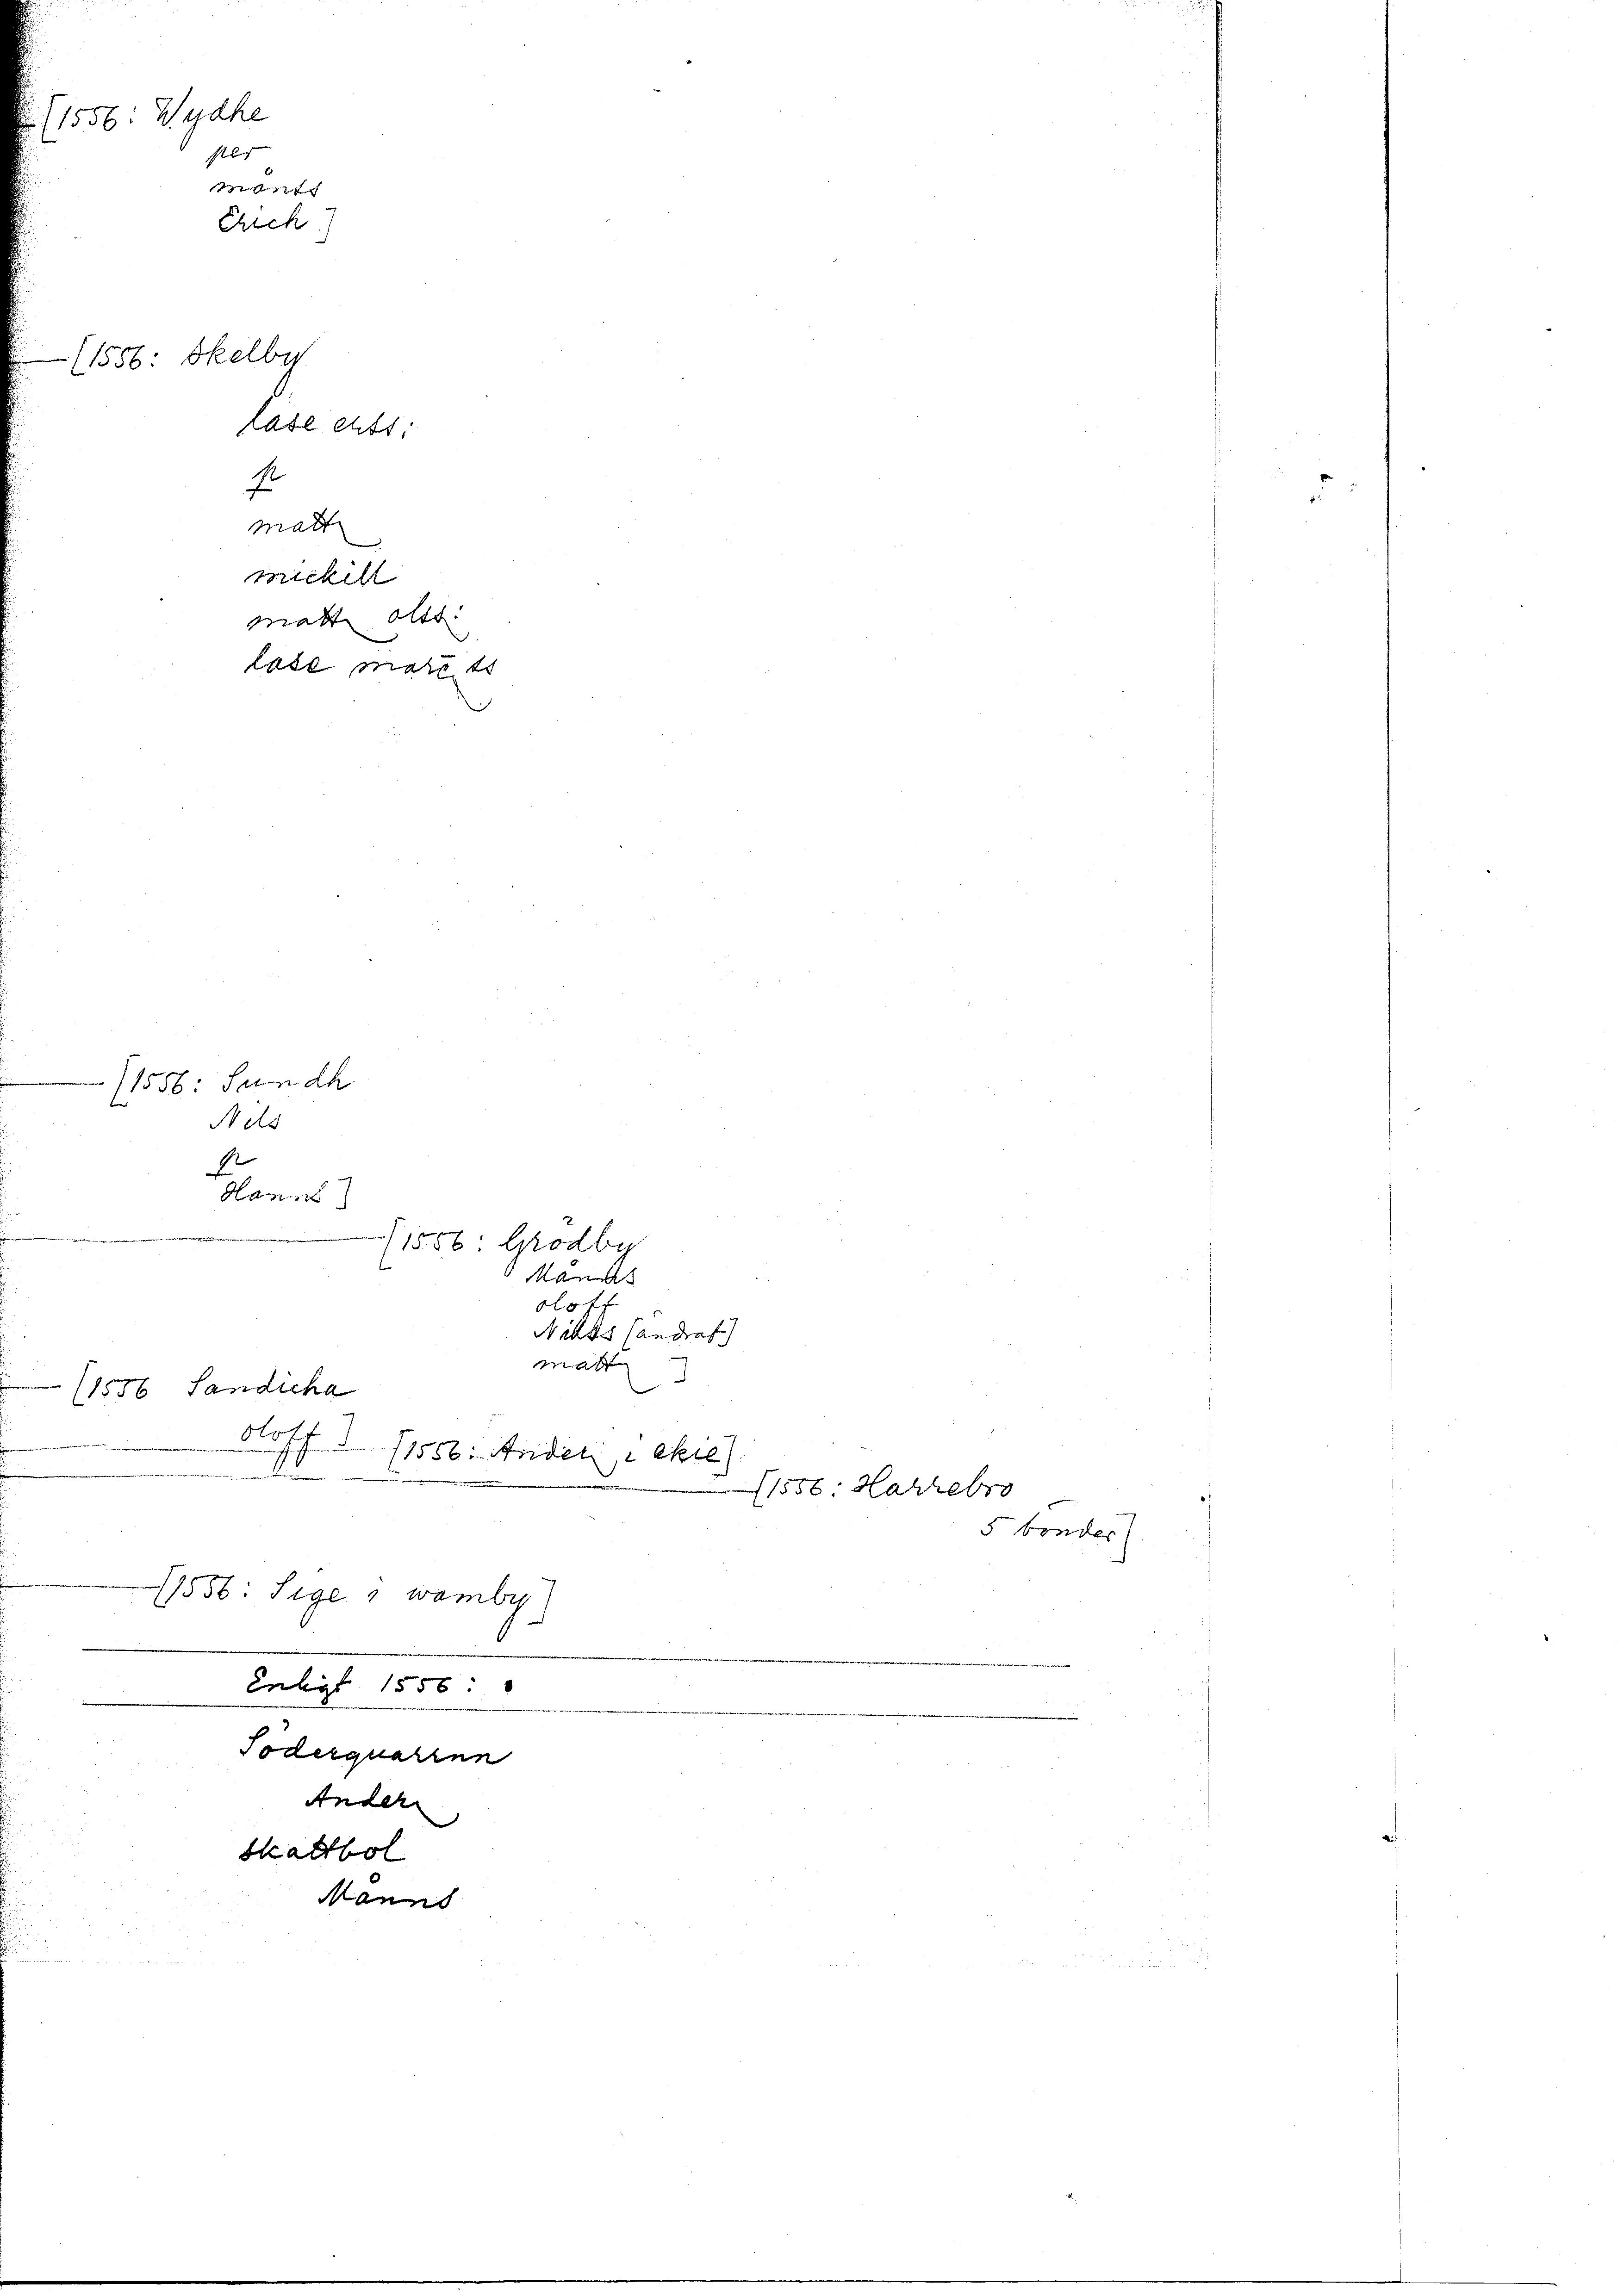 (1556: Wydhe
per
månts
Erich)
(1556: Skelby
låse erss:
p
matt
mickill
matt olss:
lase mar ts
(1556: Sundh
Nils
p
Hanns)
(1556: Grödby
Månds
oloff
Nills (andrat)
matt )
(1556 Sandicha
oloff )
(1556: Ander i ekie)
(1556: Harrebro
5 bönder)
(1556: Sige i wamby)
Enligt 1556:
Söderquarnn
Ander
Skattbol
Månns